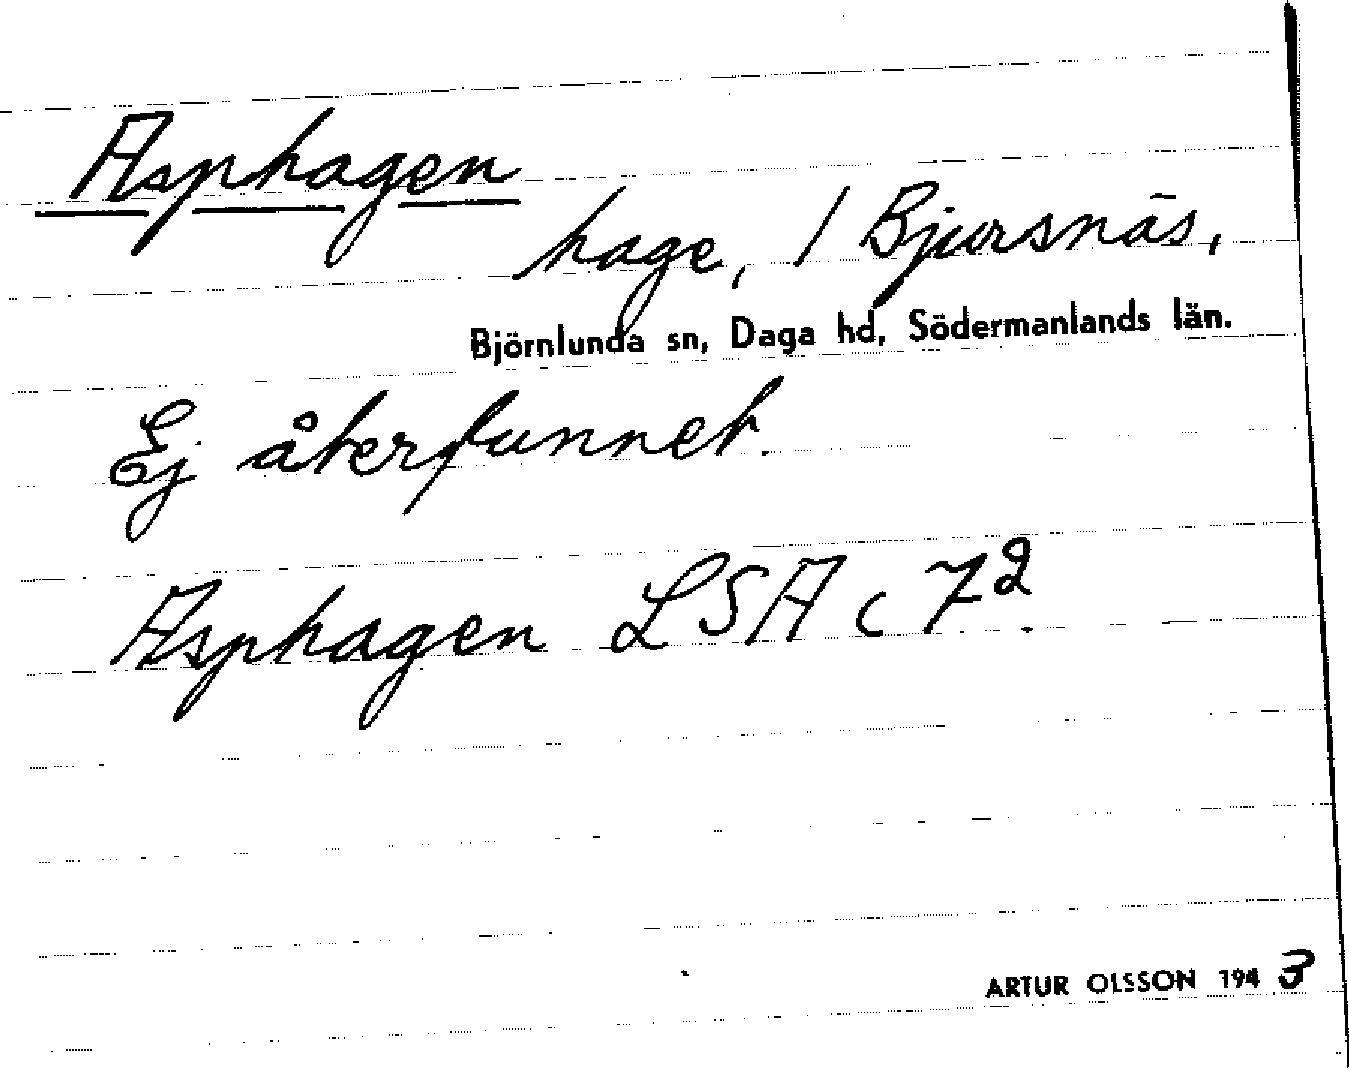 Asphagen
hage, / Bjursnäs,
Björnlunda sn, Daga hd, Södermanlands län.
Ej återfunnet.
Asphagen LSA c 7².
ARTUR OLSSON 1943